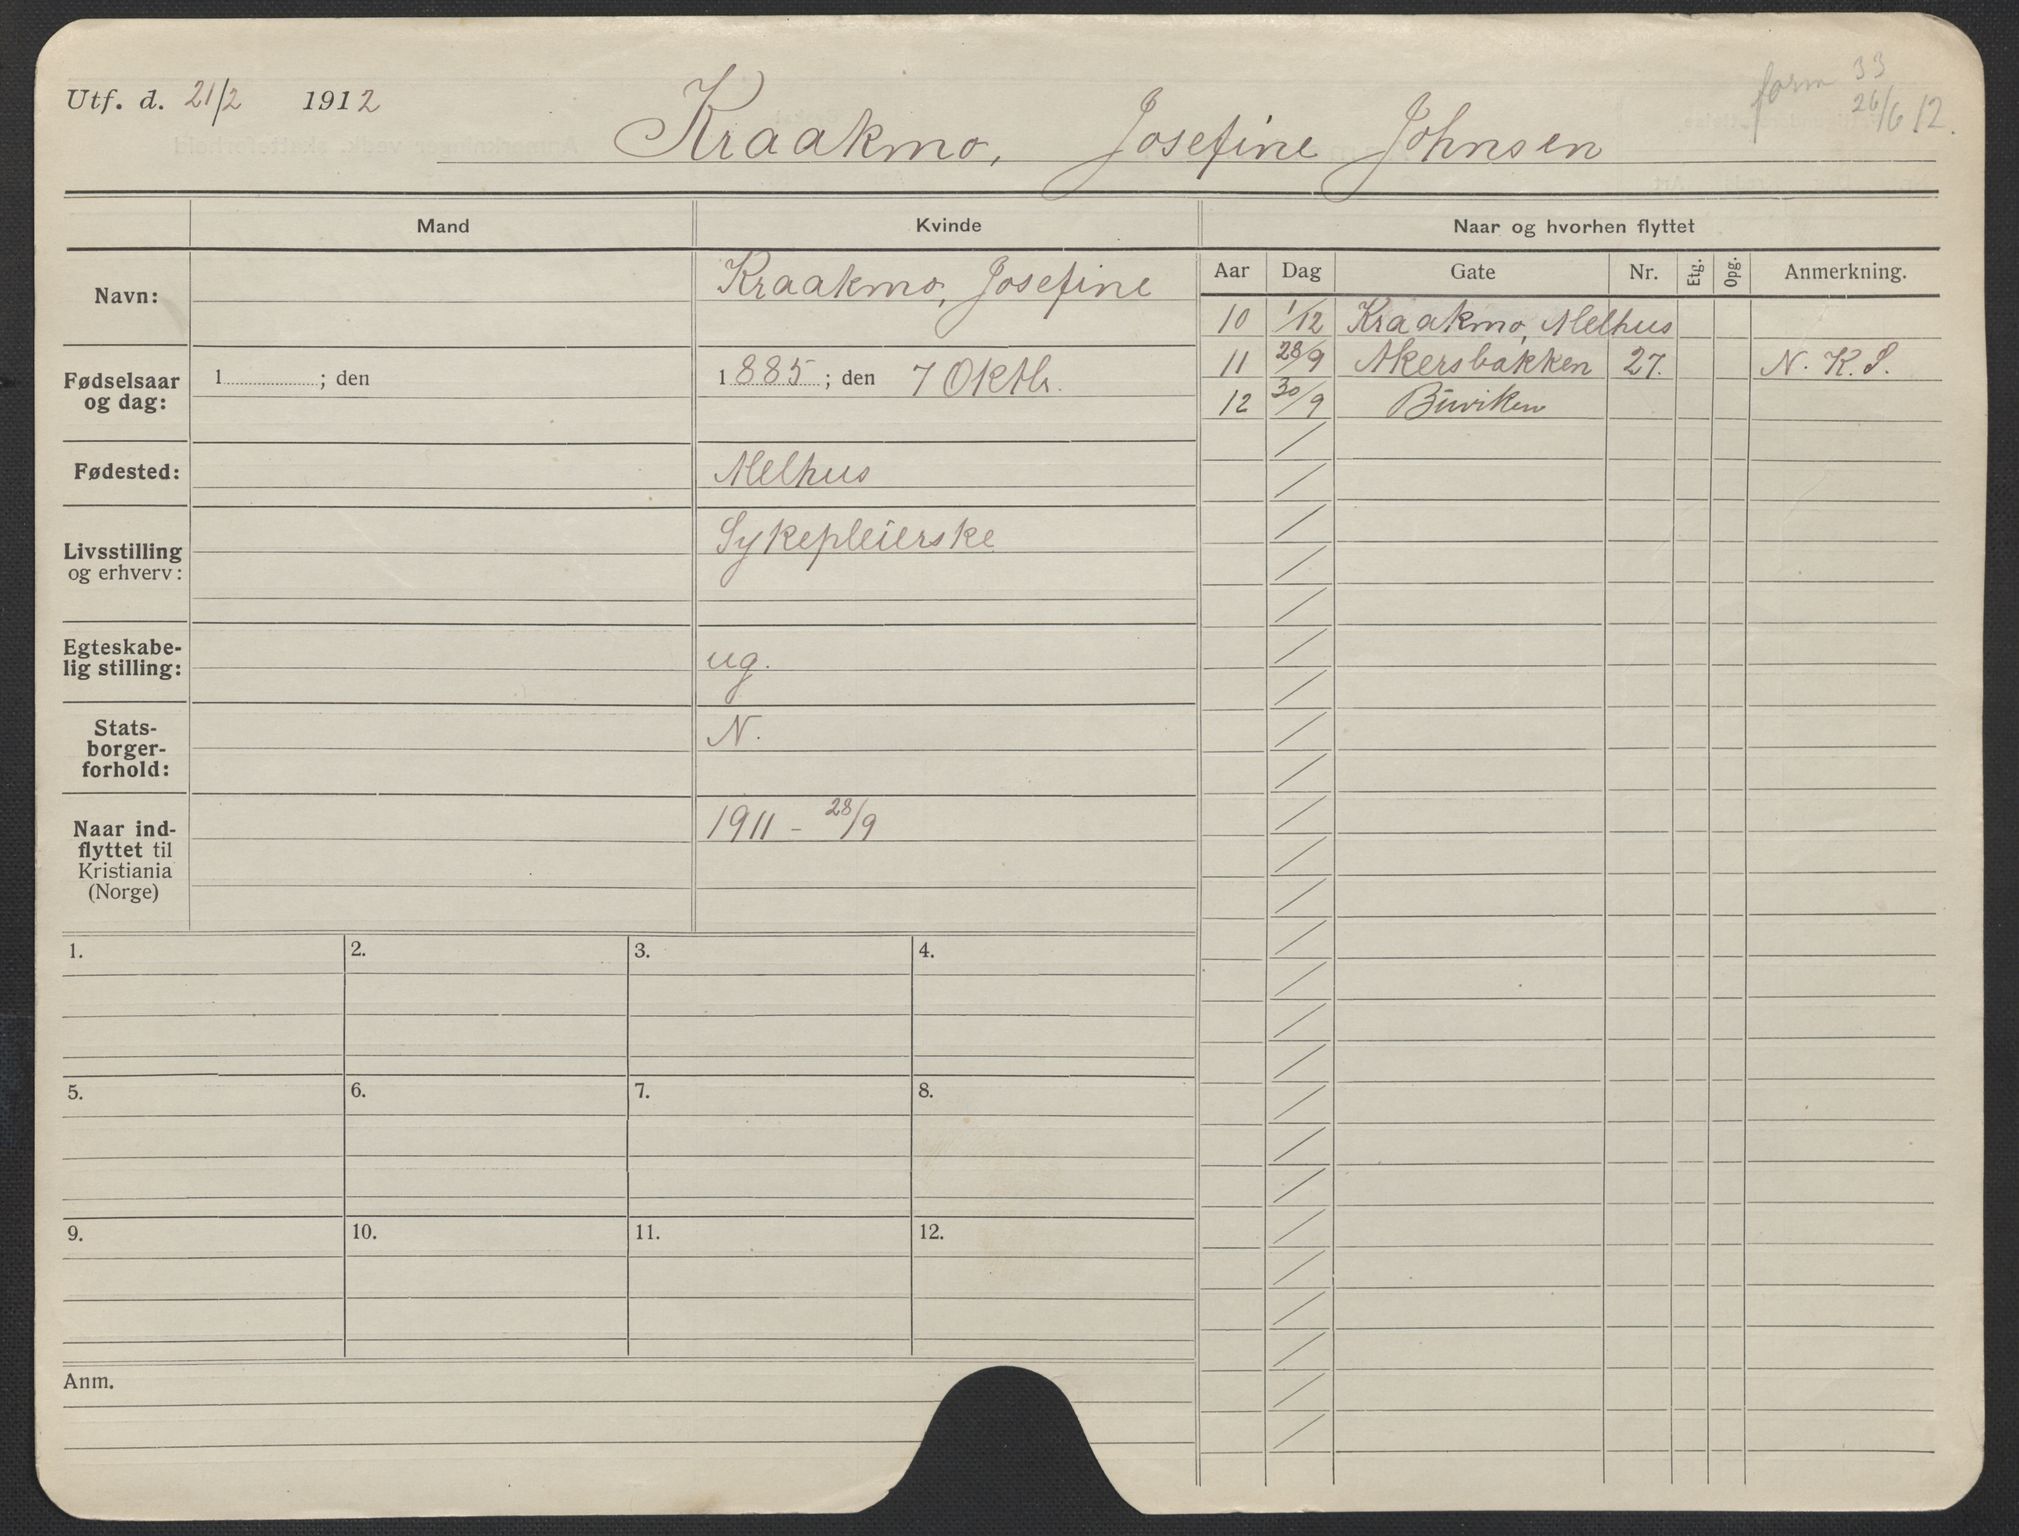 Utf. d. 21/2 1912
form 33
26/6 12.
Kraakmo, Josefine Johnsen
Mand
Kvinde
Naar og hvorhen flyttet
Navn:
Kraakmo, Josefine
Aar Dag Gate Nr. Etg. Opg. Anmerkning.
10 1/12 Kraakmo, Melhus
11 28/9 Akersbakken 27. N. K. S.
12 30/9 Buviken
Fødselsaar
og dag:
1 ; den
1885 ; den 7 Oktb.
Fødested:
Melhus
Livsstilling
og erhverv:
Sykepleierske
Egteskabe-
lig stilling:
ug.
Stats-
borger-
forhold:
N.
Naar ind-
flyttet til
Kristiania
(Norge)
1911 - 28/9
1. 2. 3. 4.
5. 6. 7. 8.
9. 10. 11. 12.
Anm.